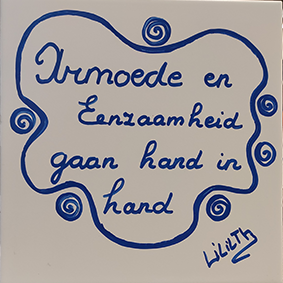 Armoede en
Eenzaamheid
gaan hand in
hand
LiLiLTh